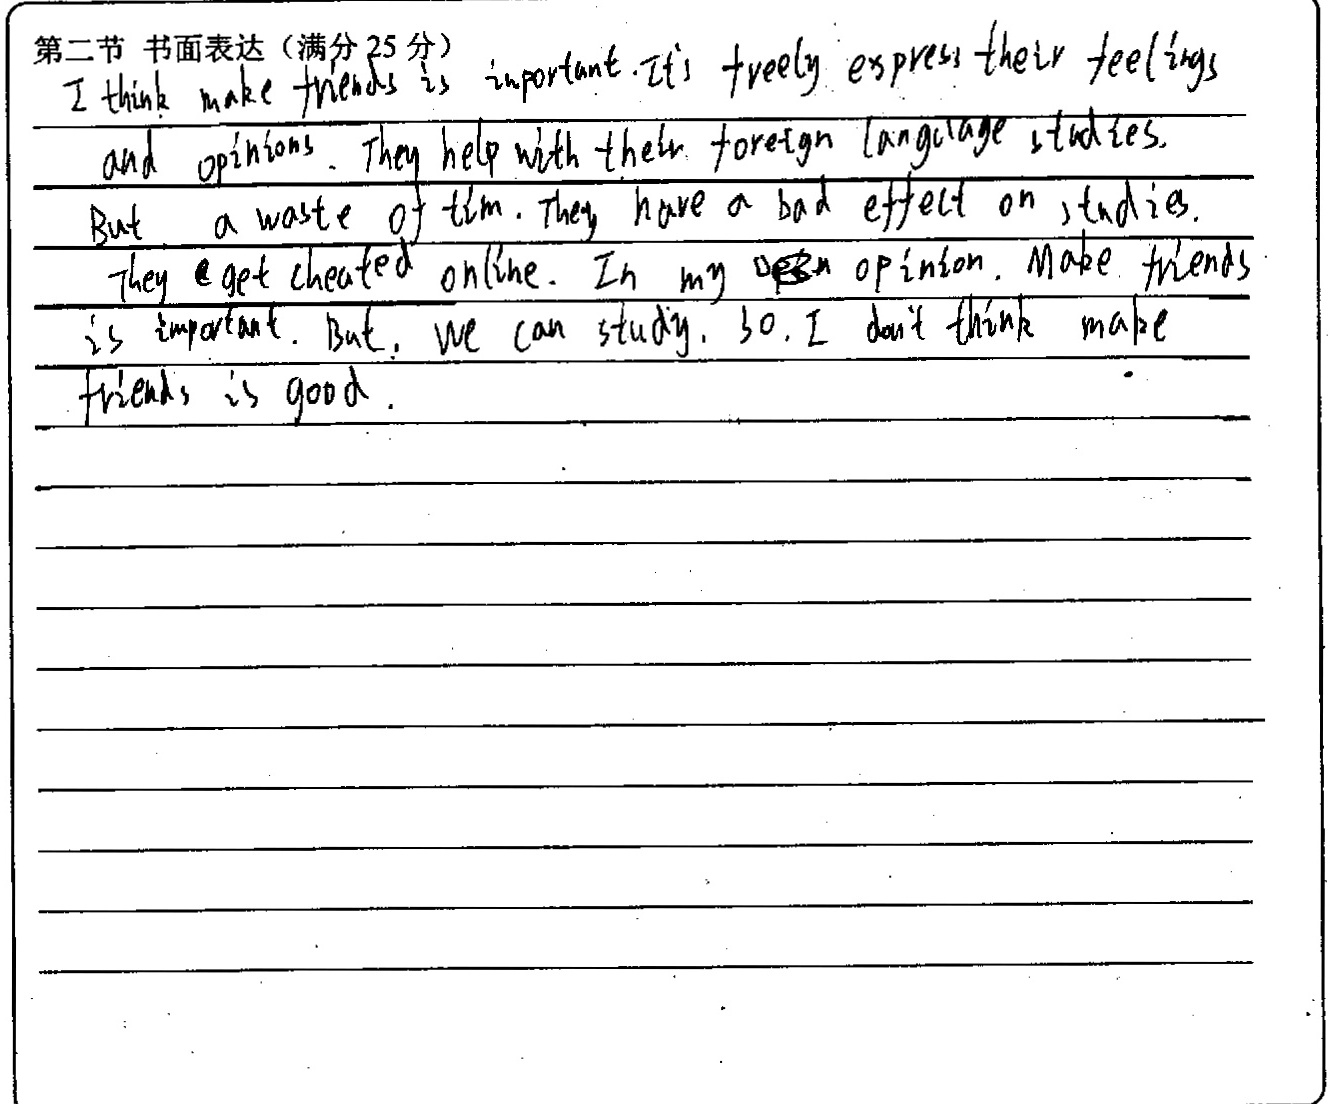 第二节 书面表达（满分 25 分）
I think make friends is inportant. It's freely express their feelings
and opinions. They help with their foreign language studies.
But a waste of tim. They have a bad effect on studies.
They get cheated online. In my opinion. Make friends
is important. But, we can study. so. I don't think make
friends is good.